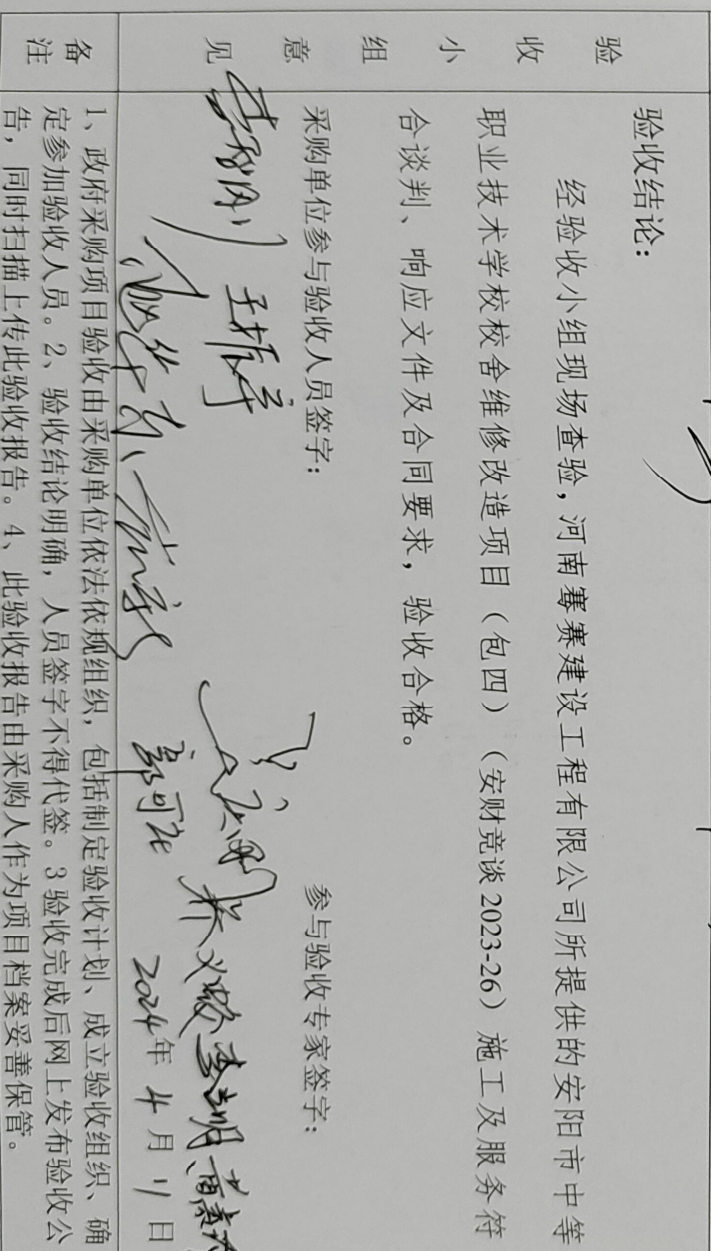 验收小组意见
验收结论：
经验收小组现场查验，河南骞赛建设工程有限公司所提供的安阳市中等
职业技术学校校舍维修改造项目（包四）（安财竞谈2023-26）施工及服务符
合谈判、响应文件及合同要求，验收合格。
采购单位参与验收人员签字：
参与验收专家签字：
王振宇
2024年4月11日
备注
1、政府采购项目验收由采购单位依法依规组织，包括制定验收计划、成立验收组织、确
定参加验收人员。2、验收结论明确，人员签字不得代签。3验收完成后网上发布验收公
告，同时扫描上传此验收报告。4、此验收报告由采购人作为项目档案妥善保管。